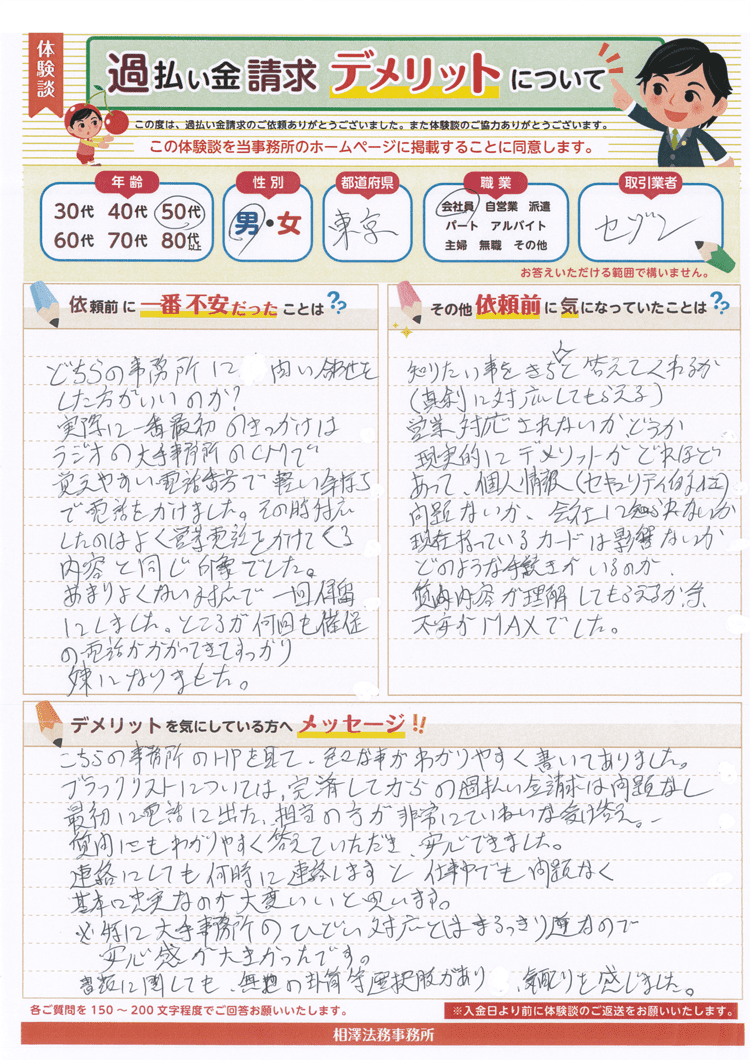 体験談
過払い金請求 デメリットについて
この度は、過払い金請求のご依頼ありがとうございました。また体験談のご協力ありがとうございます。
この体験談を当事務所のホームページに掲載することに同意します。
年齢
30代 40代 50代
60代 70代 80代以上
性別
男・女
都道府県
東京
職業
会社員 自営業 派遣
パート アルバイト
主婦 無職 その他
取引業者
セゾン
お答えいただける範囲で構いません。
依頼前に一番不安だったことは??
どちらの事務所に 問い合わせを
した方がいいのか?
実際に一番最初のきっかけは
ラジオの大手事務所のCMで
覚えやすい電話番号で軽い気持ち
で電話をかけました。その時対応
したのはよく営業電話をかけてくる
内容と同じ印象でした。
あまりよくない対応で一回保留
にしました。ところが何回も催促
の電話がかかってきてすっかり
嫌になりました。
その他依頼前に気になっていたことは??
知りたい事をきちんと答えてくれるか
(真剣に対応してもらえる)
営業対応されないか、どうか
現実的にデメリットがどれほど
あって、個人情報(セキュリティ的な)
問題ないか、会社に知られないか
現在持っているカードは影響ないか
どのような手続きがいるのか、
質問内容が理解してもらえるか、等
不安がMAXでした。
デメリットを気にしている方へメッセージ!!
こちらの事務所のHPを見て、色々な事がわかりやすく書いてありました。
ブラックリストについては、完済してからの過払い金請求は問題なし
最初に電話に出た、担当の方が非常にていねいな受け答え。
質問にもわかりやすく答えていただき、安心できました。
連絡にしても何時に連絡しますと仕事中でも問題なく
基本に忠実なのが大変いいと思います。
※特に大手事務所のひどい対応とはまるっきり逆なので
安心感が大きかったです。
書類に関しても、無地の封筒等選択肢があり、気配りを感じました。
各ご質問を150～200文字程度でご回答お願いいたします。
※入金日より前に体験談のご返送をお願いいたします。
相澤法務事務所